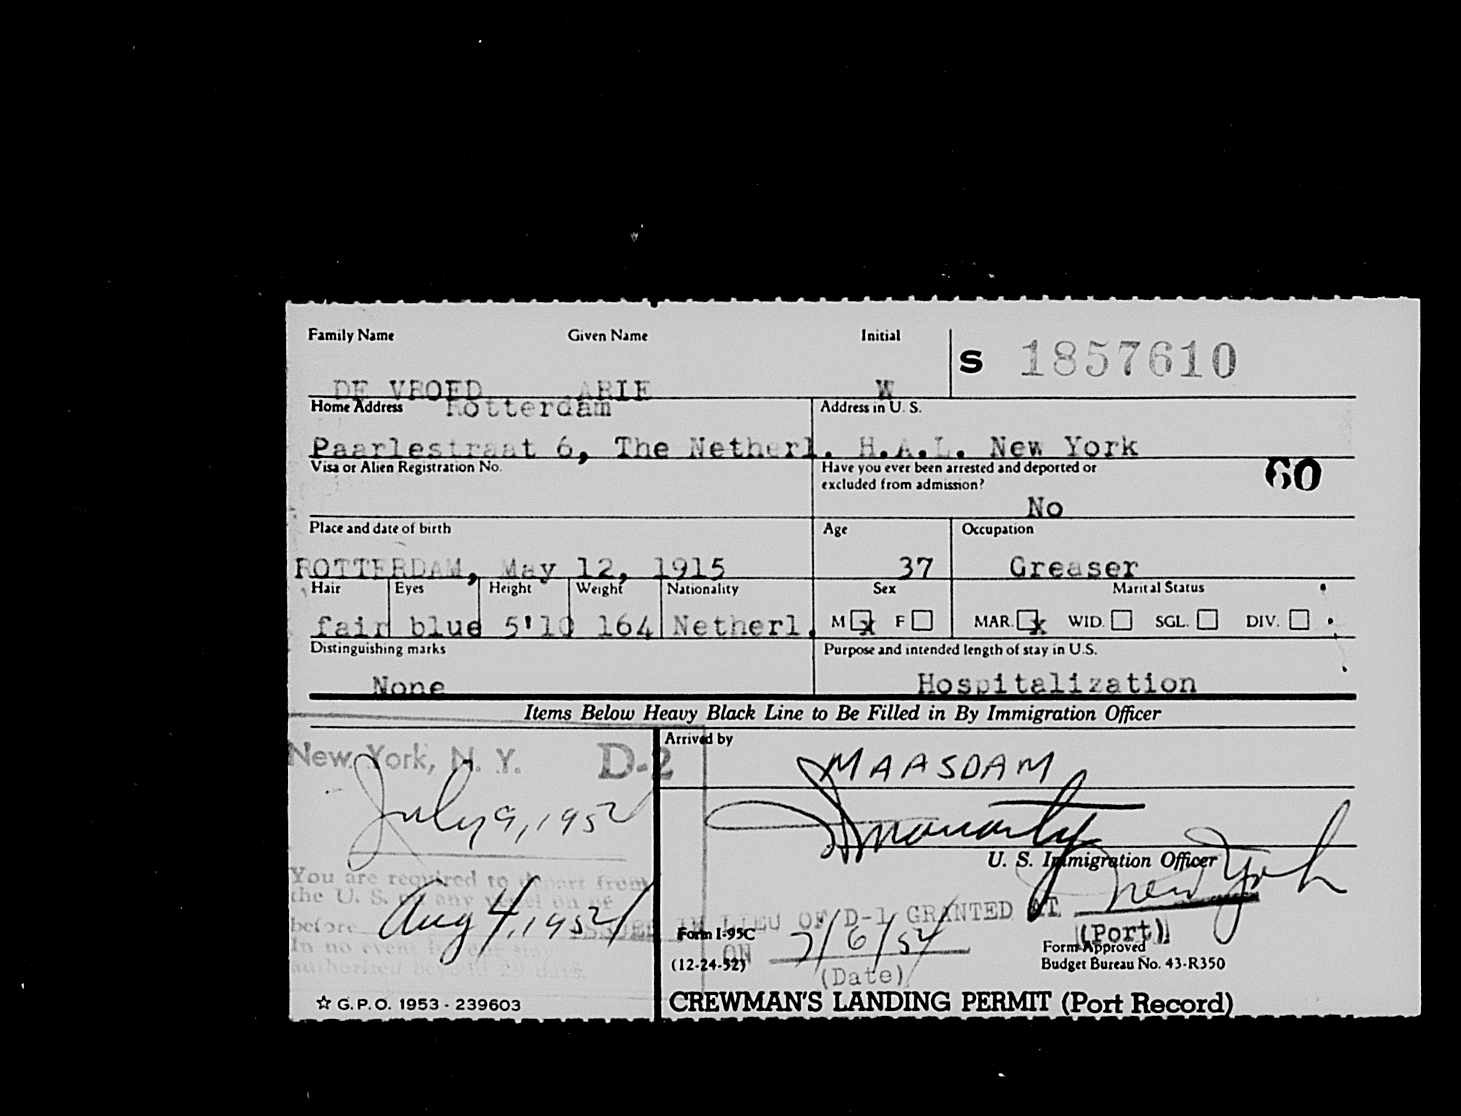 Family Name Given Name Initial
S 1857610
DE VROED ARIE W
Home Address Rotterdam Address in U. S.
Paarlestraat 6, The Netherl. H.A.L. New York
Visa or Alien Registration No. Have you ever been arrested and deported or
excluded from admission? 60
No
Place and date of birth Age Occupation
ROTTERDAM, May 12, 1915 37 Greaser
Hair Eyes Height Weight Nationality Sex Marital Status
fair blue 5'10 164 Netherl. M x F MAR. x WID. SGL. DIV.
Distinguishing marks Purpose and intended length of stay in U.S.
None Hospitalization
Items Below Heavy Black Line to Be Filled in By Immigration Officer
Arrived by
New York, N. Y. D-2 MAASDAM
July 9, 195
U. S. Immigration Officer
You are required to depart from
the U. S. on any vessel on or
before Aug 4, 195
New York
ISSUED IN LIEU OF D-1 GRANTED AT
(Port)
Form I-95C ON 7/6/54 Form Approved
In no event
(12-24-52) (Date) Budget Bureau No. 43-R350
authorized beyond 29 days.
☆ G.P.O. 1953 - 239603 CREWMAN'S LANDING PERMIT (Port Record)